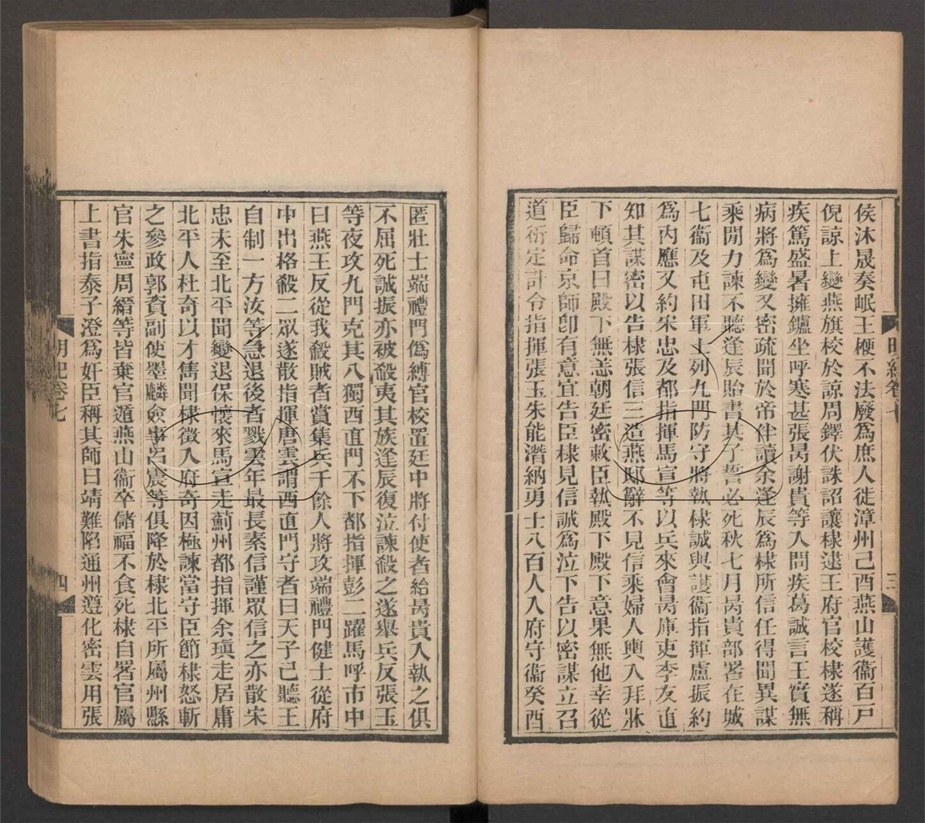 侯沐晟奏岷王楩不法廢爲庶人徙漳州己酉燕山護衞百戸
倪諒上變燕旗校於諒周鐸伏誅詔讓棣逮王府官校棣遂稱
疾篤盛暑擁鑪坐呼寒甚張昺謝貴等入問疾葛誠言王實無
病將爲變又密疏聞於帝伴讀余逢辰爲棣所信任得聞異謀
乘閒力諫不聽逢辰貽書其子誓必死秋七月昺貴部署在城
七衞及屯田軍士列九門防守將執棣誠與護衞指揮盧振約
爲内應又約宋忠及都指揮馬宣等以兵來會昺庫吏李友直
知其謀密以告棣張信三造燕邸辭不見信乘婦人輿入拜牀
下頓首曰殿下無恙朝廷密敕臣執殿下殿下意果無他幸從
臣歸命京師卽有意宜告臣棣見信誠爲泣下告以密謀立召
道衍定計令指揮張玉朱能潛納勇士八百人入府守衞癸酉
三
匿壯士端禮門僞縛官校置廷中將付使者紿昺貴入執之俱
不屈死誠振亦被殺夷其族逢辰復泣諫殺之遂舉兵反張玉
等夜攻九門克其八獨西直門不下都指揮彭二躍馬呼市中
曰燕王反從我殺賊者賞集兵千餘人將攻端禮門健士從府
中出格殺二眾遂散指揮唐雲謂西直門守者曰天子已聽王
自制一方汝等急退後者戮雲年最長素信謹眾信之亦散宋
忠未至北平聞變退保懷來馬宣走薊州都指揮余瑱走居庸
北平人杜奇以才雋聞棣徵入府奇因極諫當守臣節棣怒斬
之參政郭資副使墨麟僉事呂震等俱降於棣北平所屬州縣
官朱寧周縉等皆棄官遁燕山衞卒儲福不食死棣自署官屬
上書指泰子澄爲奸臣稱其師曰靖難陷通州遵化密雲用張
明紀卷七
四